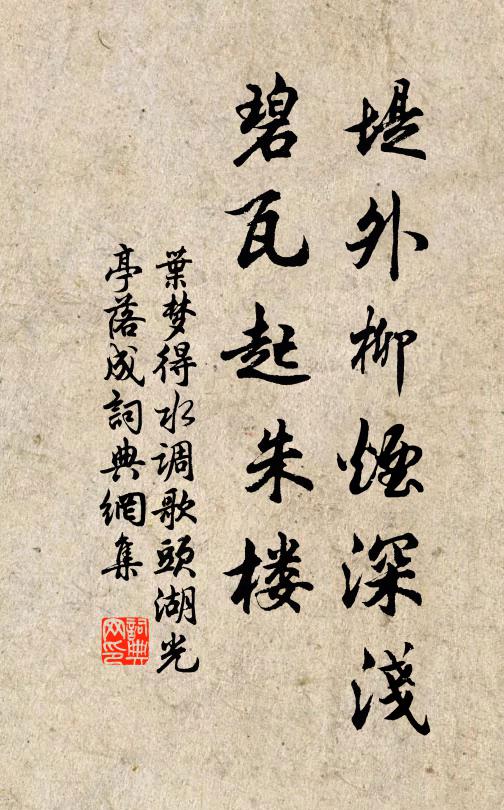 堤外柳煙深淺
碧瓦起朱楼
葉梦得水调歌頭湖光
亭落成詞典網集
詞典网印